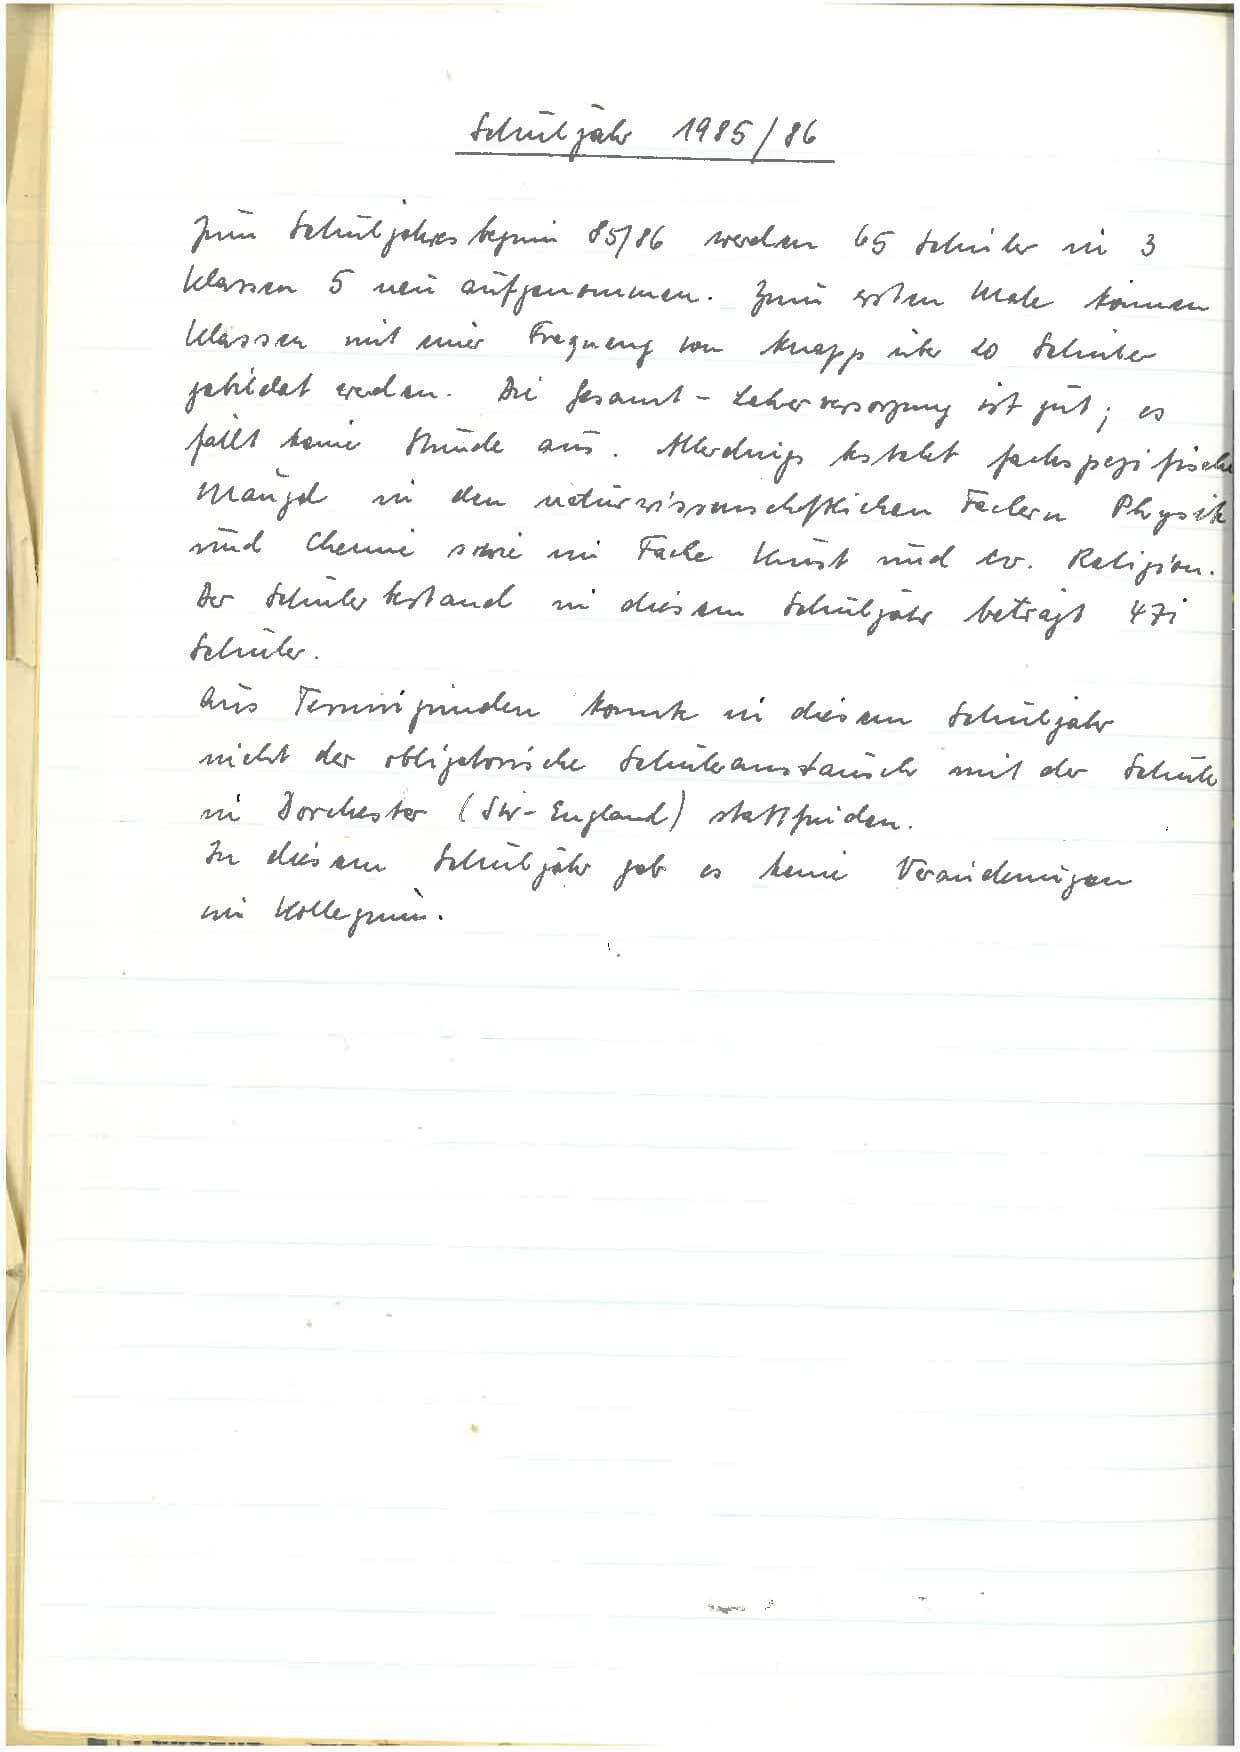 Schuljahr 1985/86
Zum Schuljahresbeginn 85/86 werden 65 Schüler in 3
Klassen 5 neu aufgenommen. Zum ersten Male können
Klassen mit einer Frequenz von knapp über 20 Schüler
gebildet werden. Die Gesamt-Lehrerversorgung ist gut; es
fällt keine Stunde aus. Allerdings besteht fachspezifische
Mängel in den naturwissenschaftlichen Fächern Physik
und Chemie sowie im Fache Kunst und ev. Religion.
Der Schülerbestand in diesem Schuljahr beträgt 471
Schüler.
Aus Termingründen konnte in diesem Schuljahr
nicht der obligatorische Schüleraustausch mit der Schule
in Dorchester (SW-England) stattfinden.
In diesem Schuljahr gab es keine Veränderungen
im Kollegium.